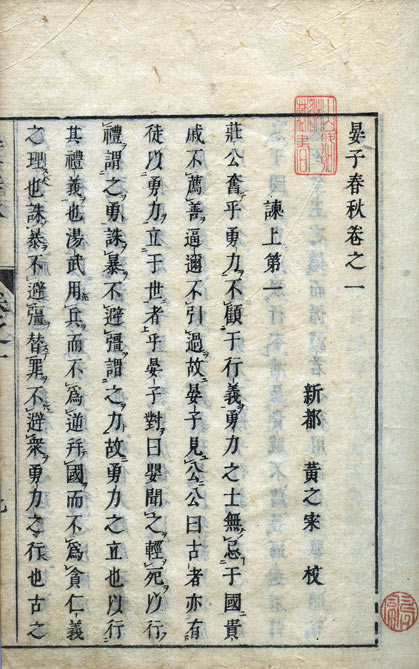 晏子春秋卷之一
新都 黃之寀 校
諫上第一
莊公奮乎勇力不顧于行義勇力之士無忌于國貴
戚不薦善逼邇不引過故晏子見公公曰古者亦有
徒以勇力立于世者乎晏子對曰嬰聞之輕死以行
禮謂之勇誅暴不避彊謂之力故勇力之立也以行
其禮義也湯武用兵而不爲逆幷國而不爲貪仁義
之理也誅暴不避彊替罪不避衆勇力之行也古之